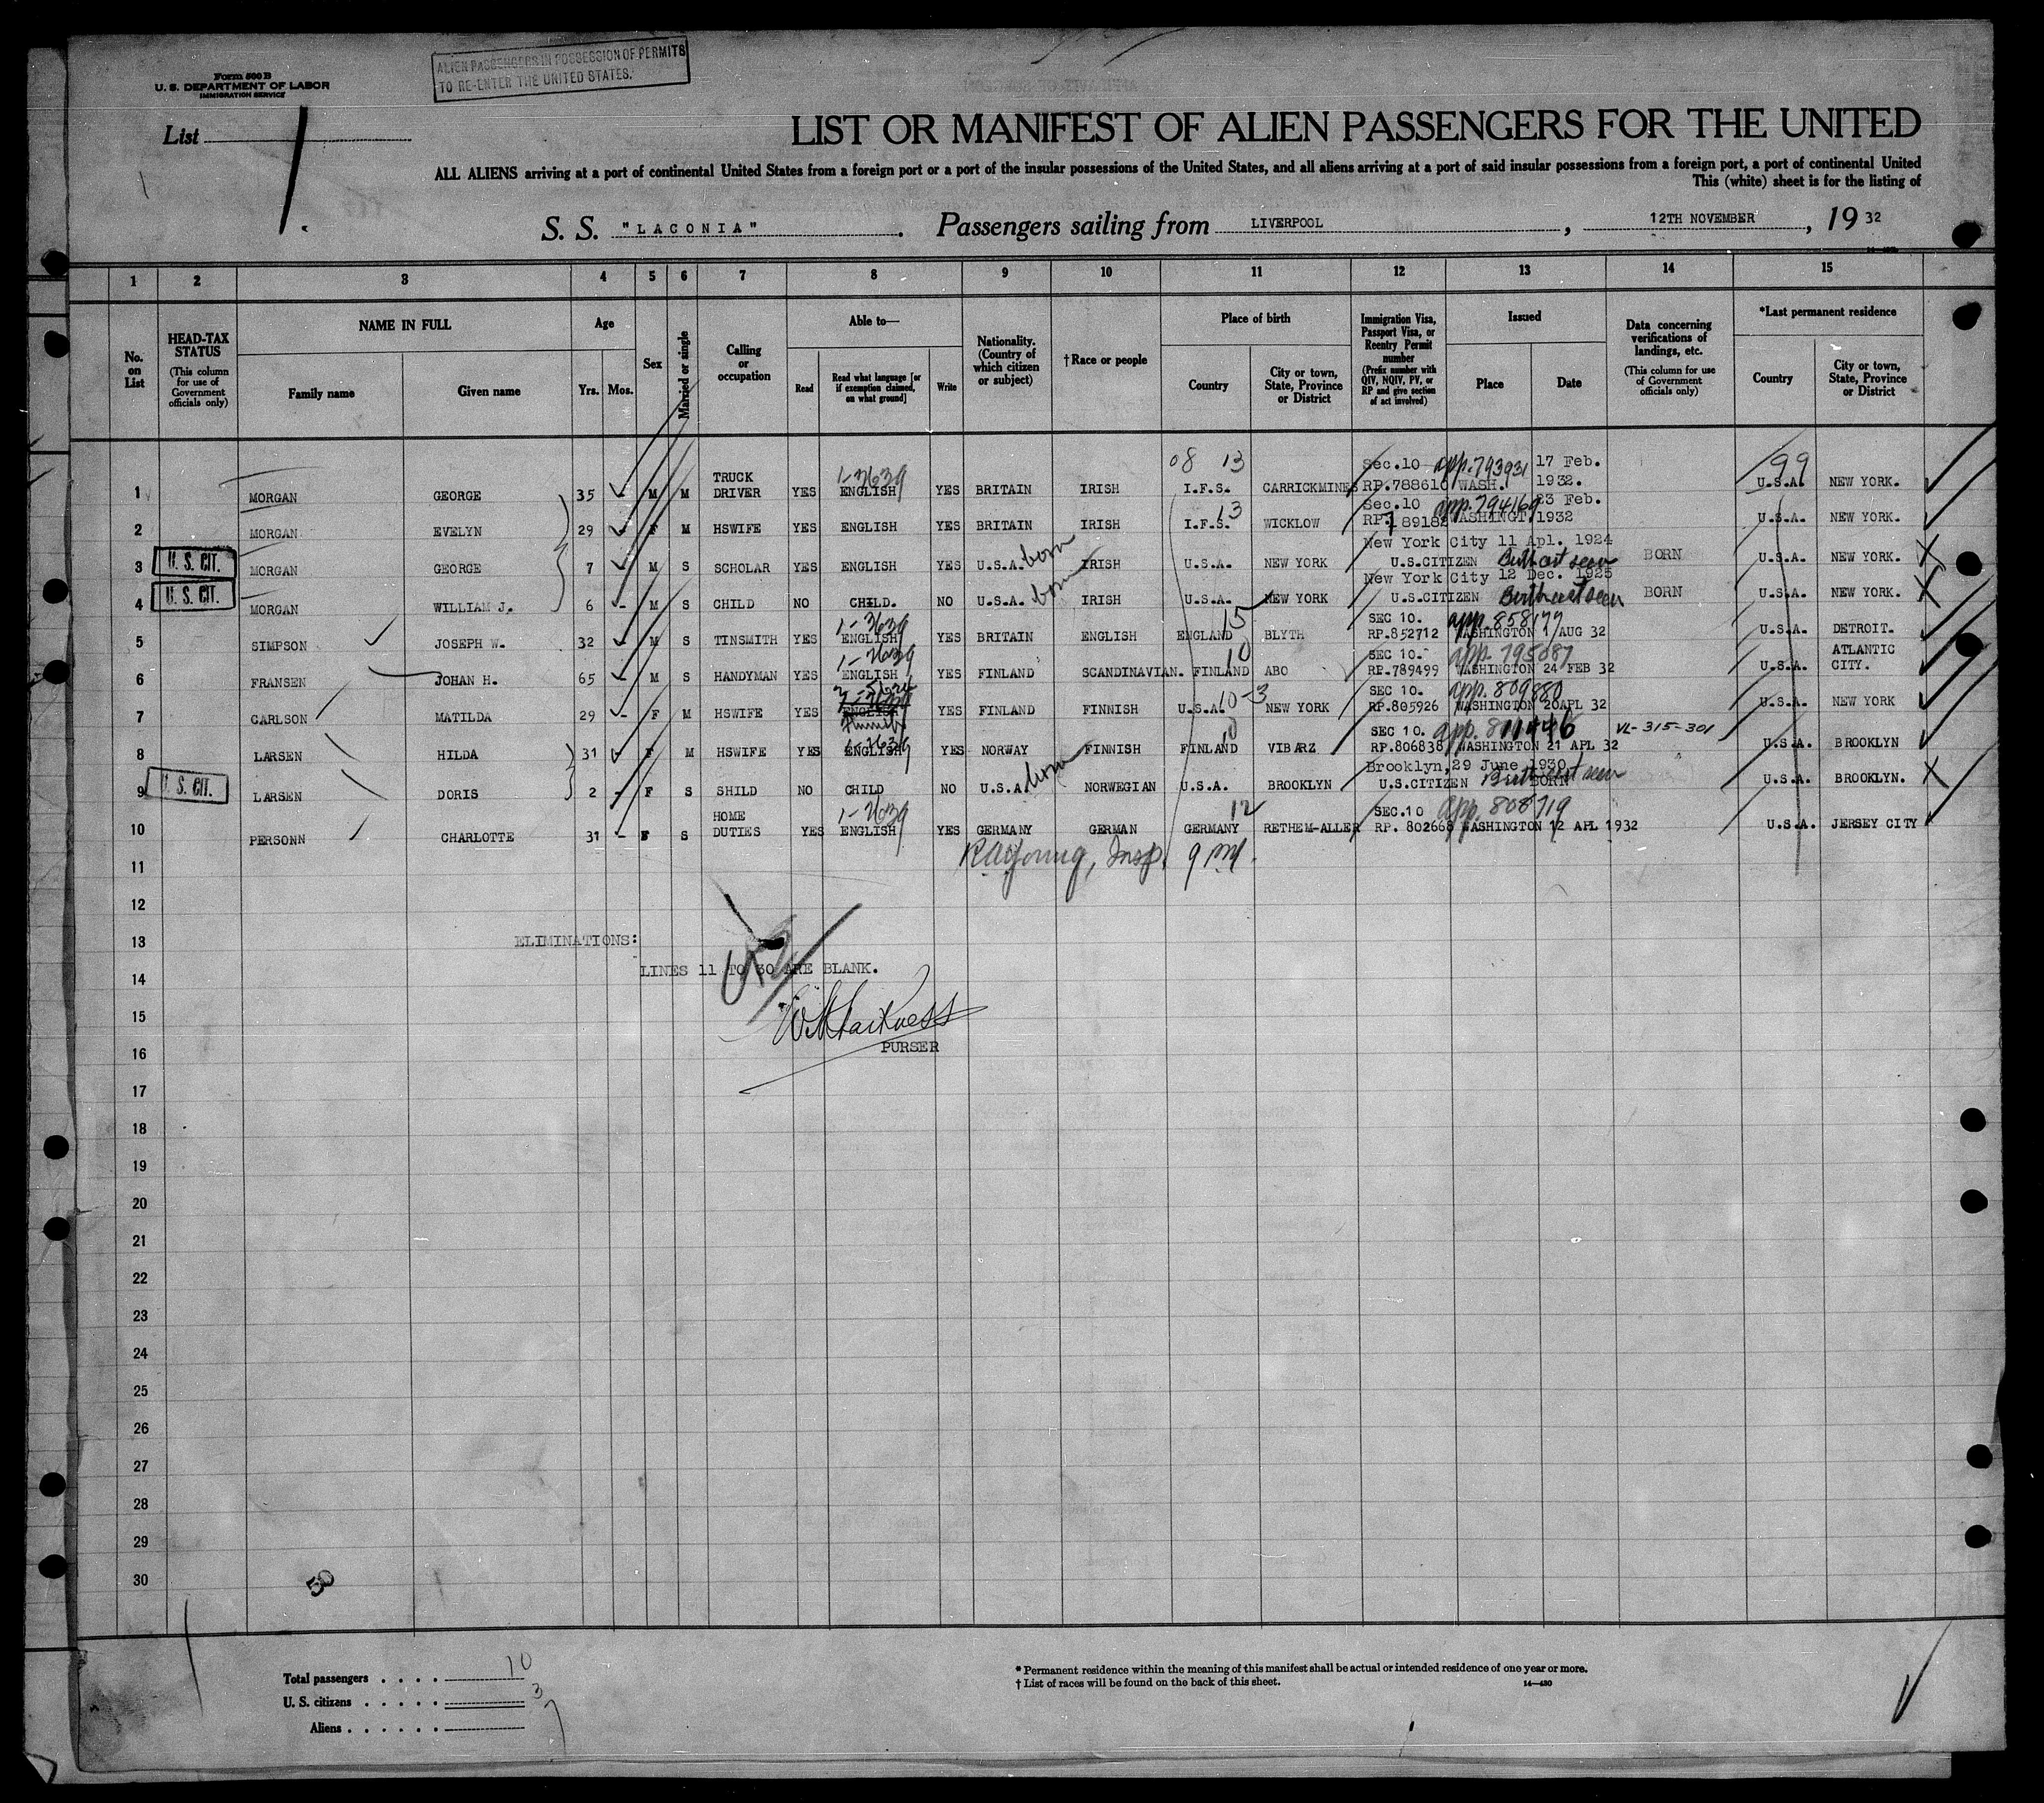 Form 500 B
U. S. DEPARTMENT OF LABOR
IMMIGRATION SERVICE
ALIEN PASSENGERS IN POSSESSION OF PERMITS
TO RE-ENTER THE UNITED STATES.
List 1
LIST OR MANIFEST OF ALIEN PASSENGERS FOR THE UNITED
ALL ALIENS arriving at a port of continental United States from a foreign port or a port of the insular possessions of the United States, and all aliens arriving at a port of said insular possessions from a foreign port, a port of continental United
This (white) sheet is for the listing of
S. S. "LACONIA". Passengers sailing from LIVERPOOL, 12TH NOVEMBER, 19 32
1 2 3 4 5 6 7 8 9 10 11 12 13 14 15
No. on List
HEAD-TAX STATUS (This column for use of Government officials only)
NAME IN FULL
Family name Given name
Age
Yrs. Mos.
Sex
Married or single
Calling or occupation
Able to—
Read Read what language [or if exemption claimed, on what ground] Write
Nationality. (Country of which citizen or subject)
†Race or people
Place of birth
Country City or town, State, Province or District
Immigration Visa, Passport Visa, or Reentry Permit number (Prefix number with QIV, NQIV, PV, or RP and give section of act involved)
Issued
Place Date
Data concerning verifications of landings, etc. (This column for use of Government officials only)
*Last permanent residence
Country City or town, State, Province or District
08 13 99
1-2639
1 MORGAN GEORGE 35 M M TRUCK DRIVER YES ENGLISH YES BRITAIN IRISH I.F.S. CARRICKMINES Sec.10 RP.788610 app.793931 WASH. 17 Feb. 1932. U.S.A. NEW YORK.
2 MORGAN EVELYN 29 F M HSWIFE YES ENGLISH YES BRITAIN IRISH I.F.S. 13 WICKLOW Sec.10 RP.789182 app.794169 WASHINGT. 23 Feb. 1932 U.S.A. NEW YORK.
3 U. S. CIT. MORGAN GEORGE 7 M S SCHOLAR YES ENGLISH YES U.S.A. born IRISH U.S.A. NEW YORK New York City 11 Apl. 1924 U.S.CITIZEN Birth cert seen BORN U.S.A. NEW YORK.
4 U. S. CIT. MORGAN WILLIAM J. 6 M S CHILD NO CHILD. NO U.S.A. born IRISH U.S.A. NEW YORK New York City 12 Dec. 1925 U.S.CITIZEN Birth cert seen BORN U.S.A. NEW YORK.
1-3639
5 SIMPSON JOSEPH W. 32 M S TINSMITH YES ENGLISH YES BRITAIN ENGLISH ENGLAND 15 BLYTH SEC 10. RP.852712 app.858177 WASHINGTON 1 AUG 32 U.S.A. DETROIT.
1-2639
6 FRANSEN JOHAN H. 65 M S HANDYMAN YES ENGLISH YES FINLAND SCANDINAVIAN. FINLAND 10 ABO SEC 10. RP.789499 app. 795087 WASHINGTON 24 FEB 32 U.S.A. ATLANTIC CITY.
7 CARLSON MATILDA 29 F M HSWIFE YES ENGLISH YES FINLAND FINNISH U.S.A. 10-3 NEW YORK SEC 10. RP.805926 app. 809880 WASHINGTON 20APL 32 U.S.A. NEW YORK
8 LARSEN HILDA 31 F M HSWIFE YES ENGLISH YES NORWAY FINNISH FINLAND VIBARZ SEC 10. RP.806838 app. 811446 WASHINGTON 21 APL 32 VL-315-301 U.S.A. BROOKLYN
9 U. S. CIT. LARSEN DORIS 2 F S SHILD NO CHILD NO U.S.A. born NORWEGIAN U.S.A. BROOKLYN Brooklyn, 29 June 1930 U.S.CITIZEN Birth cert seen BORN U.S.A. BROOKLYN.
1-2639
10 PERSONN CHARLOTTE 31 F S HOME DUTIES YES ENGLISH YES GERMANY GERMAN GERMANY 12 RETHEM-ALLER SEC.10 RP. 802668 app. 808719 WASHINGTON 12 APL 1932 U.S.A. JERSEY CITY
11 Insp. 9 PM.
12
13 ELIMINATIONS:
14 LINES 11 TO 30 ARE BLANK.
15 Harkness
16 PURSER
17
18
19
20
21
22
23
24
25
26
27
28
29
30
50
Total passengers . . . . 10
U. S. citizens . . . . . 3
Aliens . . . . . . 7
* Permanent residence within the meaning of this manifest shall be actual or intended residence of one year or more.
† List of races will be found on the back of this sheet.
14—430